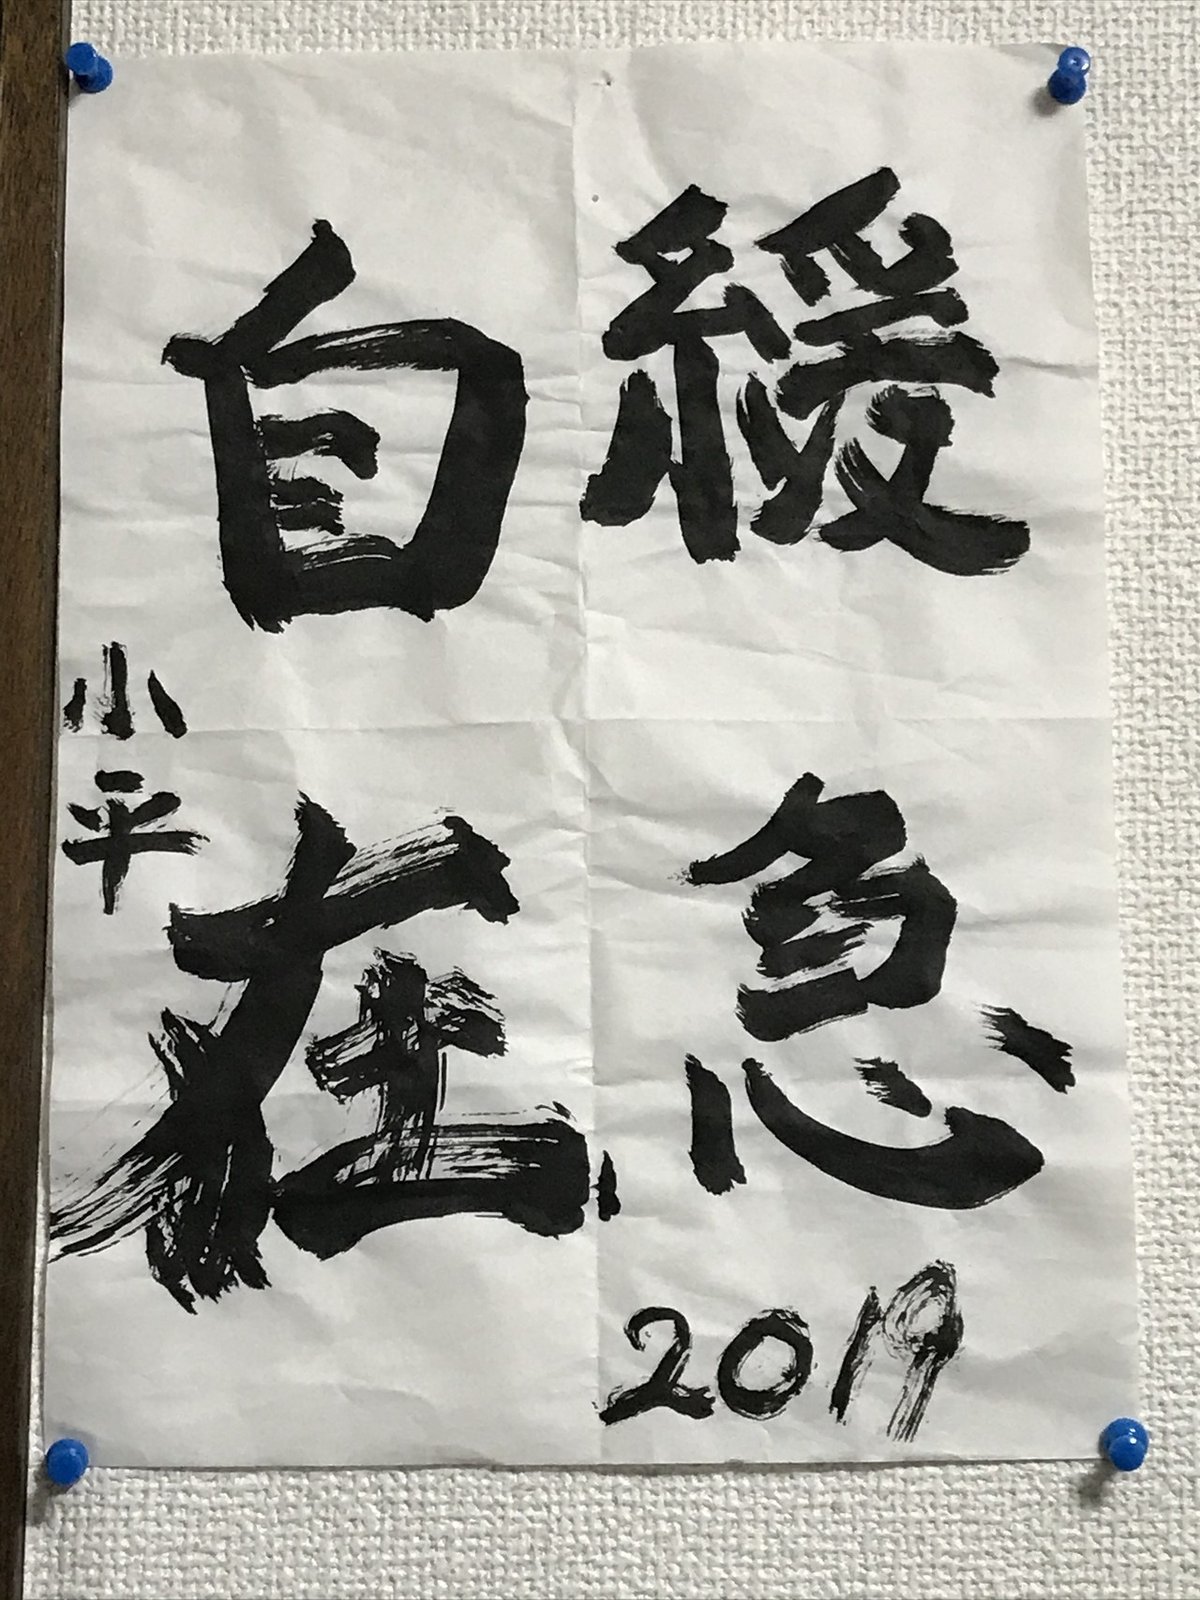 緩急
自在
小平
2019